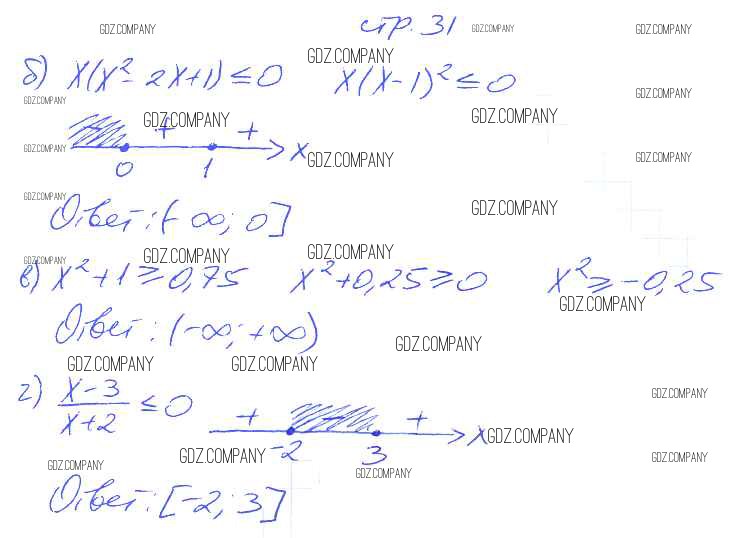 GDZ.COMPANY стр. 31 GDZ.COMPANY GDZ.COMPANY
GDZ.COMPANY
б) x(x² - 2x+1) ≤ 0 x(x-1)² ≤ 0
GDZ.COMPANY GDZ.COMPANY
GDZ.COMPANY GDZ.COMPANY
+ +
GDZ.COMPANY x GDZ.COMPANY GDZ.COMPANY
0 1
GDZ.COMPANY GDZ.COMPANY
Ответ: (-∞; 0]
GDZ.COMPANY GDZ.COMPANY GDZ.COMPANY
в) x²+1 ≥ 0,75 x²+0,25 ≥ 0 x² ≥ -0,25
GDZ.COMPANY
Ответ: (-∞; +∞)
GDZ.COMPANY
GDZ.COMPANY GDZ.COMPANY
г) x-3 / x+2 ≤ 0 GDZ.COMPANY
+ - +
x GDZ.COMPANY
GDZ.COMPANY -2 3 GDZ.COMPANY
GDZ.COMPANY GDZ.COMPANY
Ответ: [-2; 3]